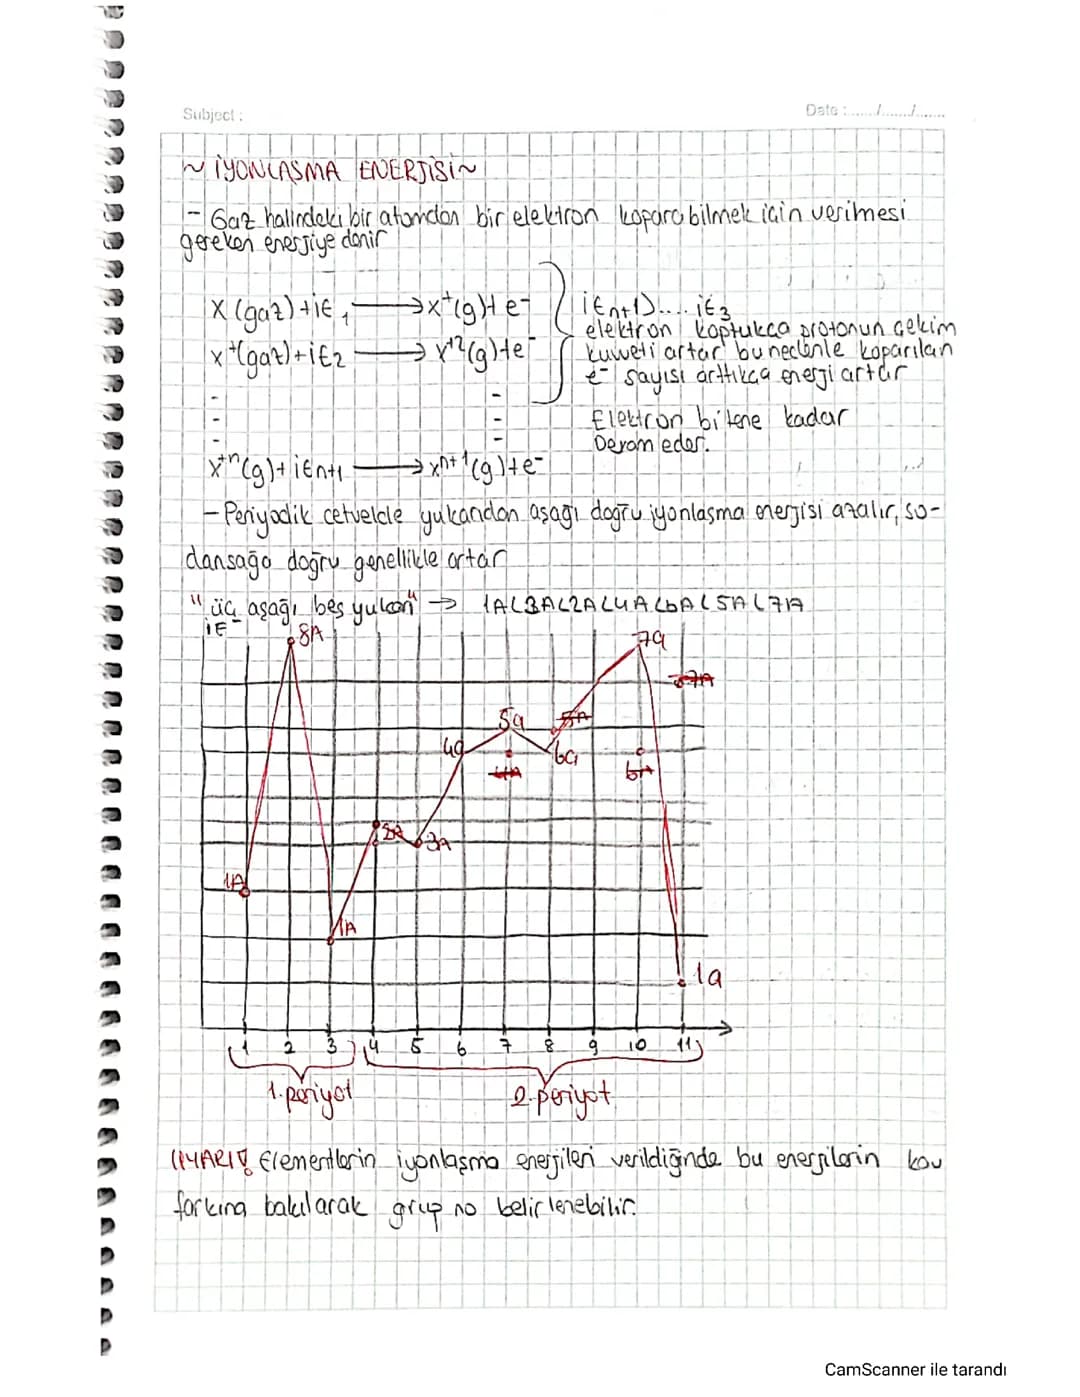 Subject :
Date : ....../......./.......
~ İYONLAŞMA ENERJİSİ ~
- Gaz halindeki bir atomdan bir elektron koparabilmek için verilmesi
gereken enerjiye denir
X (gaz) + iE1 → x+(g) + e-
x+(gaz) + iE2 → x+2(g) + e-
x+n(g) + iEn+1 → xn+1(g) + e-
iEn+1).... iE3
elektron koptukça protonun çekim
kuvveti artar bu nedenle koparılan
e- sayısı arttıkça enerji artar
Elektron bitene kadar
Devam eder.
- Periyodik cetvelde yukarıdan aşağı doğru iyonlaşma enerjisi azalır, so-
dansağa doğru genellikle artar
"üç aşağı beş yukarı" → 1A<3A<2A<4A<6A<5A<7A
iE
8A
7a
7A
5a
5A
4a
6a
4A
6A
2A
3A
1A
1A
1a
1 2 3 4 5 6 7 8 9 10 11
1. periyot
2. periyot
UYARI! Elementlerin iyonlaşma enerjileri verildiğinde bu enerjilerin
farkına bakılarak grup no belirlenebilir.
CamScanner ile tarandı